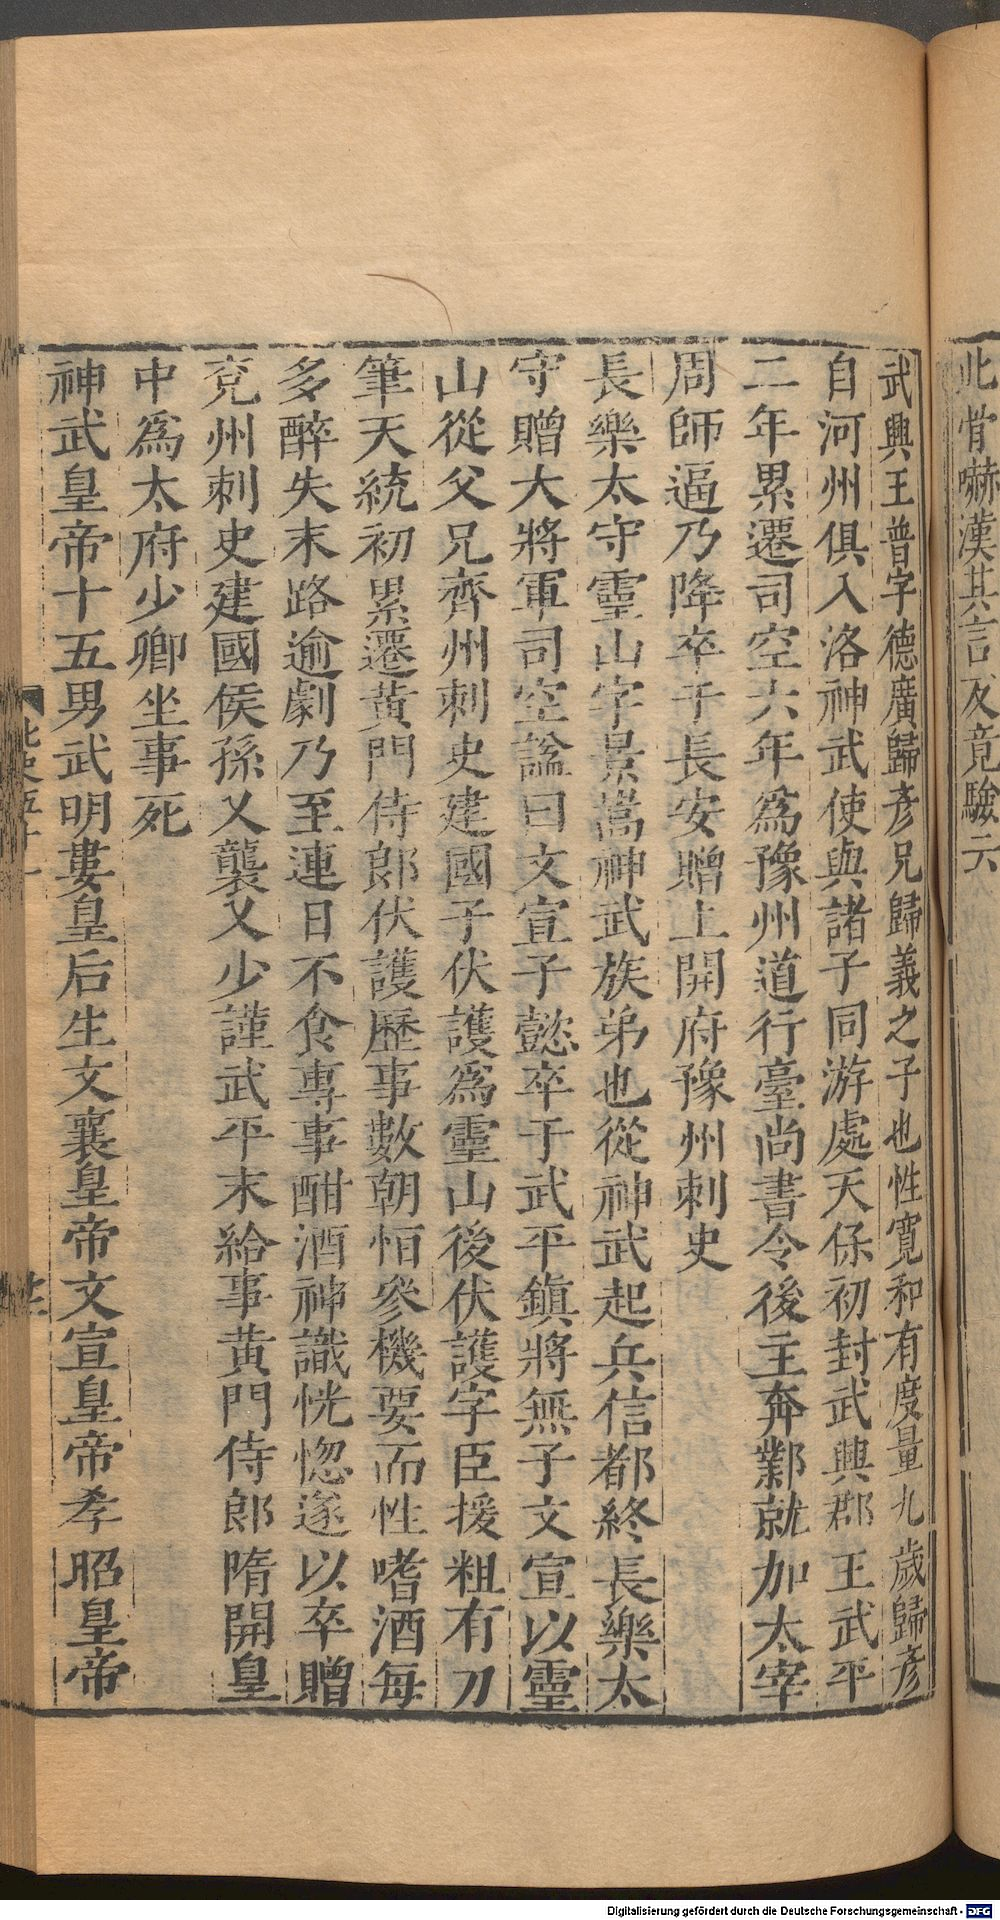 此骨嚇漢其言反竟驗云
武興王普字德廣歸彥兄歸義之子也性寬和有度量九歲歸彥
自河州俱入洛神武使與諸子同游處天保初封武興郡王武平
二年累遷司空六年爲豫州道行臺尚書令後主奔鄴就加太宰
周師逼乃降卒于長安贈上開府豫州刺史
長樂太守靈山字景嵩神武族弟也從神武起兵信都終長樂太
守贈大將軍司空諡曰文宣子懿卒于武平鎮將無子文宣以靈
山從父兄齊州刺史建國子伏護爲靈山後伏護字臣援粗有刀
筆天統初累遷黃門侍郎伏護歷事數朝恒參機要而性嗜酒每
多醉失末路逾劇乃至連日不食專事酣酒神識恍惚遂以卒贈
兗州刺史建國侯孫乂襲乂少謹武平末給事黃門侍郎隋開皇
中爲太府少卿坐事死
神武皇帝十五男武明婁皇后生文襄皇帝文宣皇帝孝昭皇帝
北史五十一
Digitalisierung gefördert durch die Deutsche Forschungsgemeinschaft - DFG